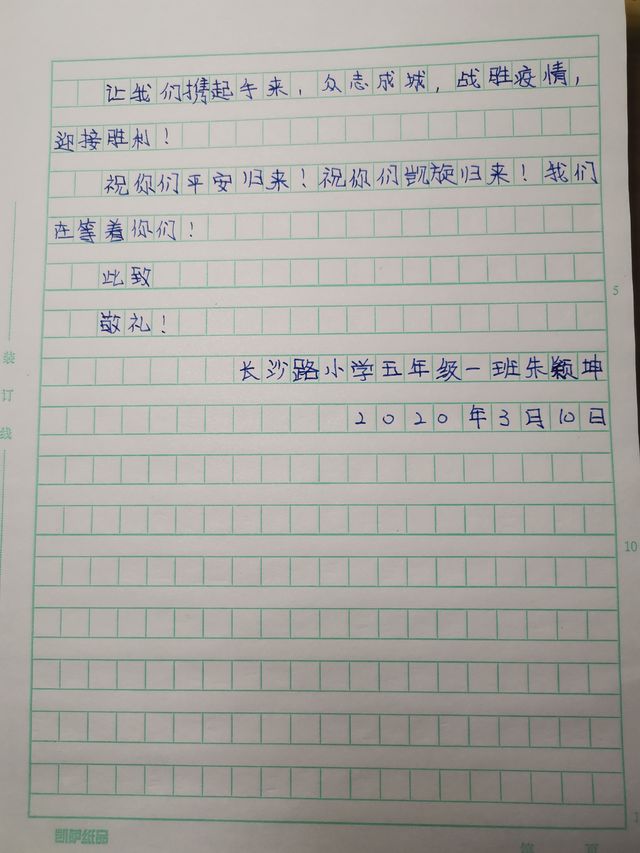 让我们携起手来，众志成城，战胜疫情，
迎接胜利！
祝你们平安归来！祝你们凯旋归来！我们
在等着你们！
此致
5
敬礼！
装
长沙路小学五年级一班朱颖坤
订
2020年3月10日
线
10
凯萨纸品